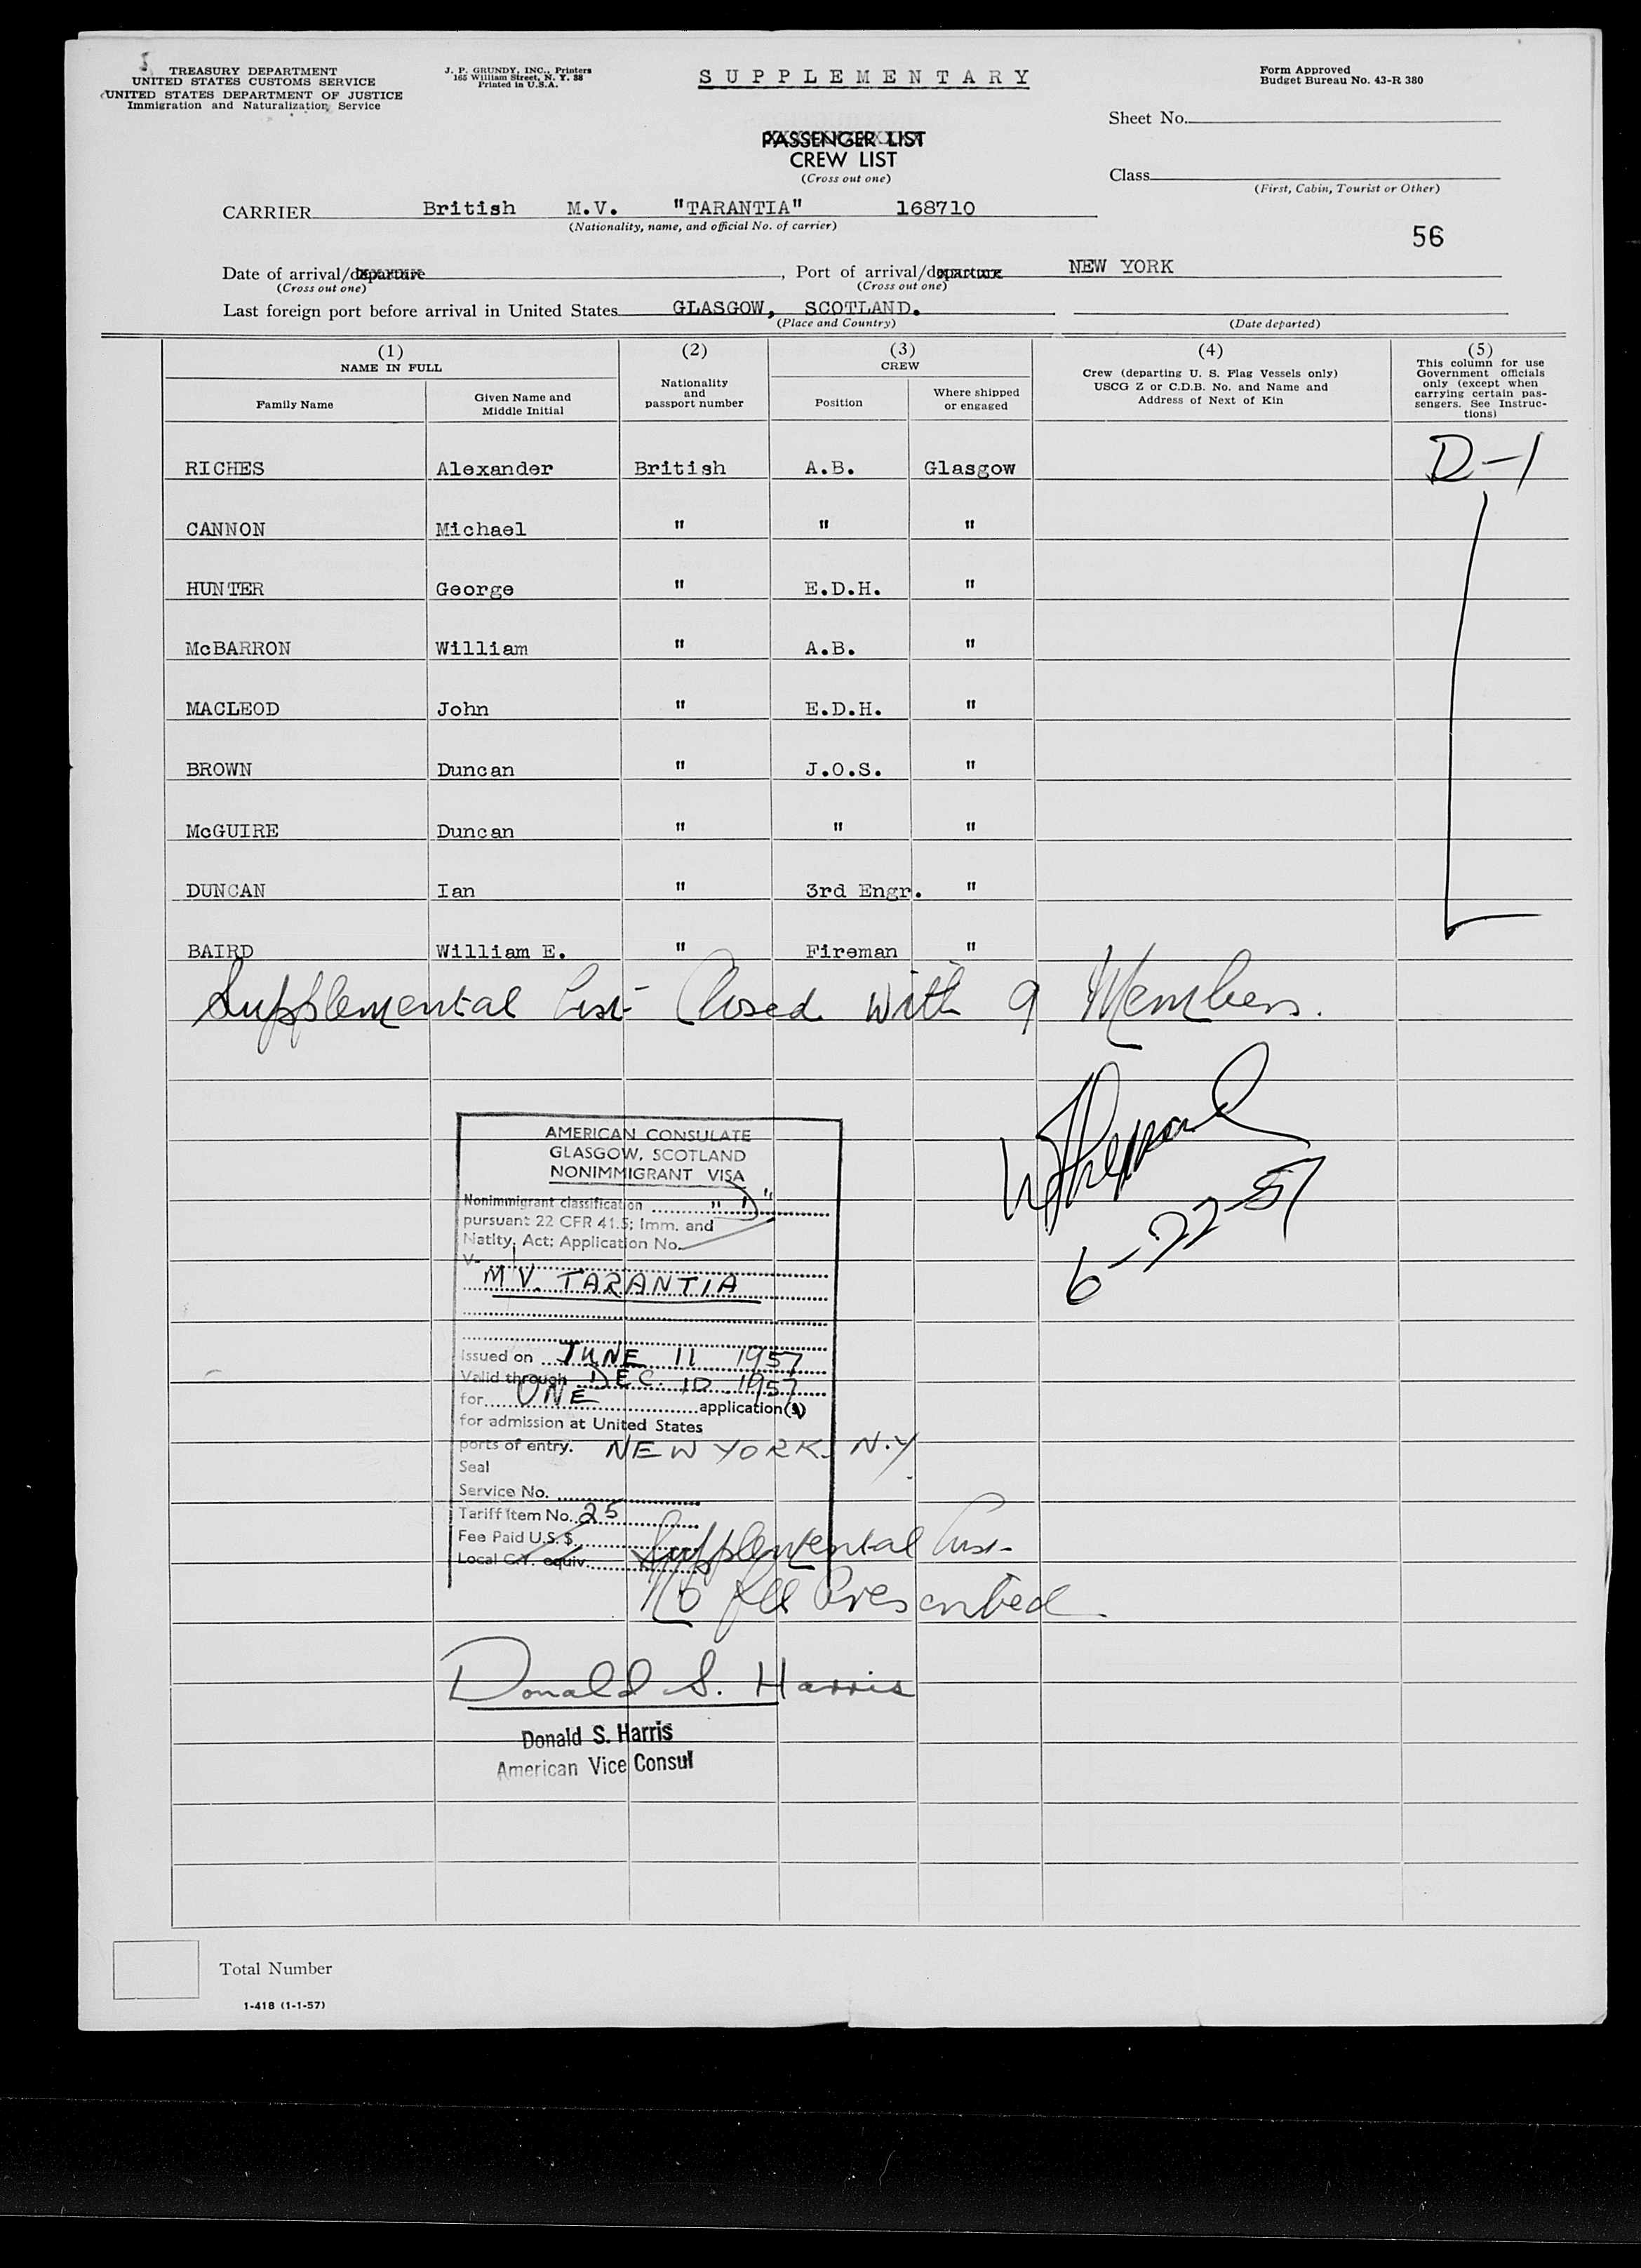 TREASURY DEPARTMENT
UNITED STATES CUSTOMS SERVICE
UNITED STATES DEPARTMENT OF JUSTICE
Immigration and Naturalization Service
J. P. GRUNDY, INC., Printers
165 William Street, N. Y. 38
Printed in U.S.A.
SUPPLEMENTARY
Form Approved
Budget Bureau No. 43-R 380
Sheet No.
PASSENGER LIST
CREW LIST
(Cross out one)
Class
(First, Cabin, Tourist or Other)
CARRIER British M.V. "TARANTIA" 168710
(Nationality, name, and official No. of carrier)
56
Date of arrival/departure , Port of arrival/departure NEW YORK
(Cross out one) (Cross out one)
Last foreign port before arrival in United States GLASGOW, SCOTLAND.
(Place and Country) (Date departed)
(1) (2) (3) (4) (5)
NAME IN FULL
Family Name
Given Name and Middle Initial
Nationality and passport number
CREW
Position
Where shipped or engaged
Crew (departing U. S. Flag Vessels only)
USCG Z or C.D.B. No. and Name and
Address of Next of Kin
This column for use
Government officials
only (except when
carrying certain pas-
sengers. See Instruc-
tions)
RICHES Alexander British A.B. Glasgow D-1
CANNON Michael " " "
HUNTER George " E.D.H. "
McBARRON William " A.B. "
MACLEOD John " E.D.H. "
BROWN Duncan " J.O.S. "
McGUIRE Duncan " " "
DUNCAN Ian " 3rd Engr. "
BAIRD William E. " Fireman "
Supplemental List Closed with 9 Members.
6-22-57
AMERICAN CONSULATE
GLASGOW, SCOTLAND
NONIMMIGRANT VISA
Nonimmigrant classification "D"
pursuant 22 CFR 41.5; Imm. and
Natlty. Act: Application No.
V-
MV. TARANTIA
Issued on JUNE 11 1957
Valid through DEC. 10 1957
for ONE application(s)
for admission at United States
ports of entry. NEW YORK, N.Y.
Seal
Service No.
Tariff Item No. 25
Fee Paid U.S. $
Local C.Y. equiv.
Supplemental List
No fee Prescribed
Donald S. Harris
Donald S. Harris
American Vice Consul
Total Number
1-418 (1-1-57)